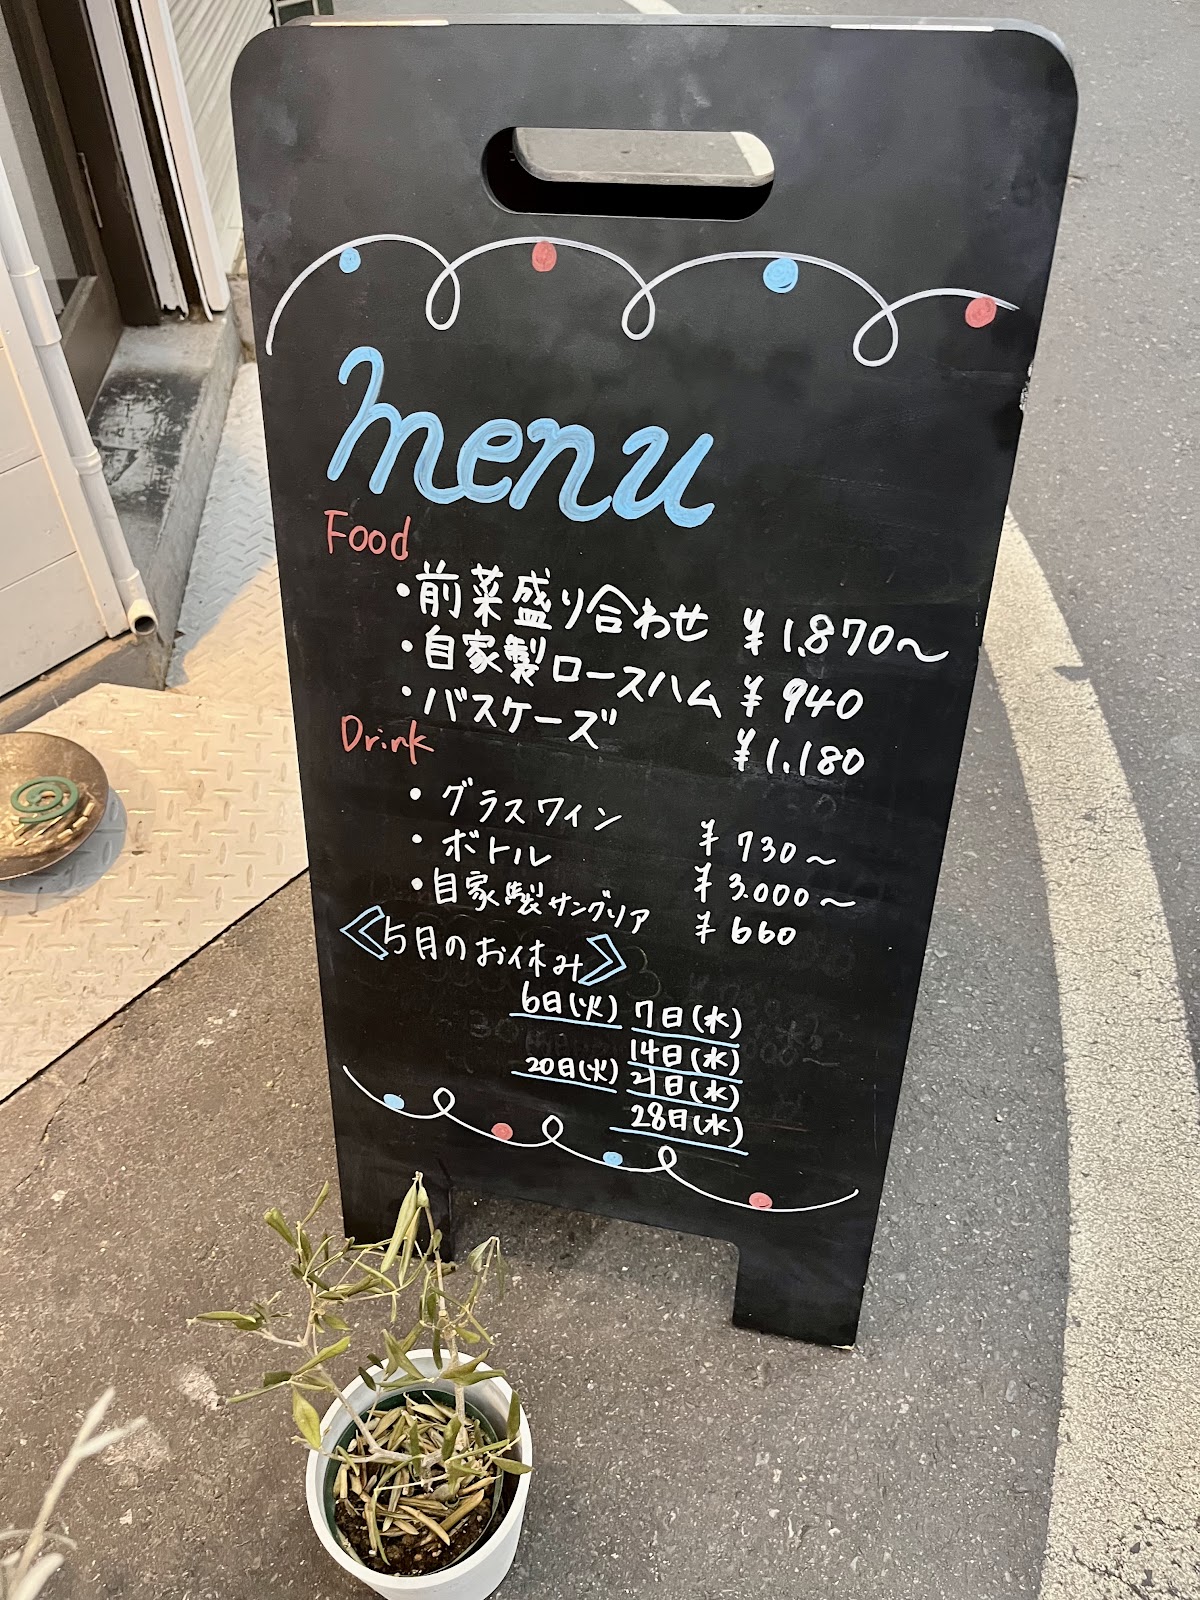 menu
Food
・前菜盛り合わせ ¥1,870〜
・自家製ロースハム ¥940
・バスケーズ ¥1,180
Drink
・グラスワイン ¥730〜
・ボトル ¥3.000〜
・自家製サングリア ¥660
《5月のお休み》
6日(火) 7日(水)
14日(水)
20日(火) 21日(水)
28日(水)